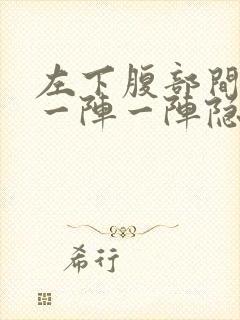 左下腹部間
一陣一陣隐
希行